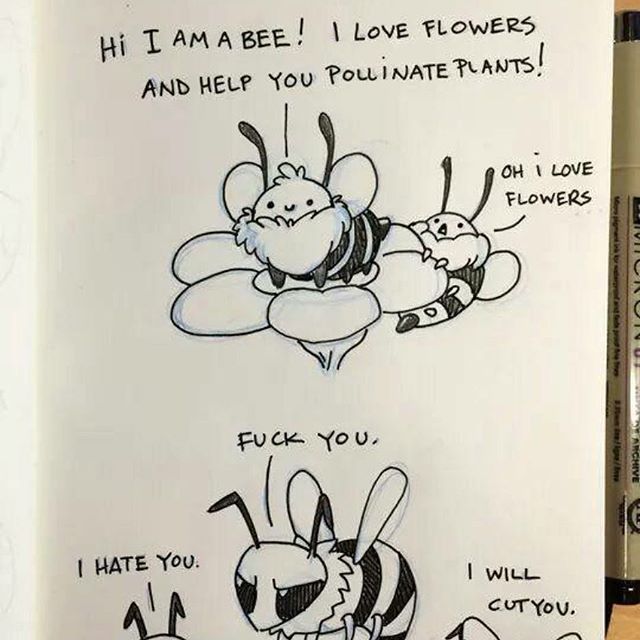 Hi I AM A BEE! I LOVE FLOWERS
AND HELP YOU POLLINATE PLANTS!
OH i LOVE
FLOWERS
FUCK YOU.
I HATE YOU.
I WILL
CUT YOU.
MICRON
ARCHIVE